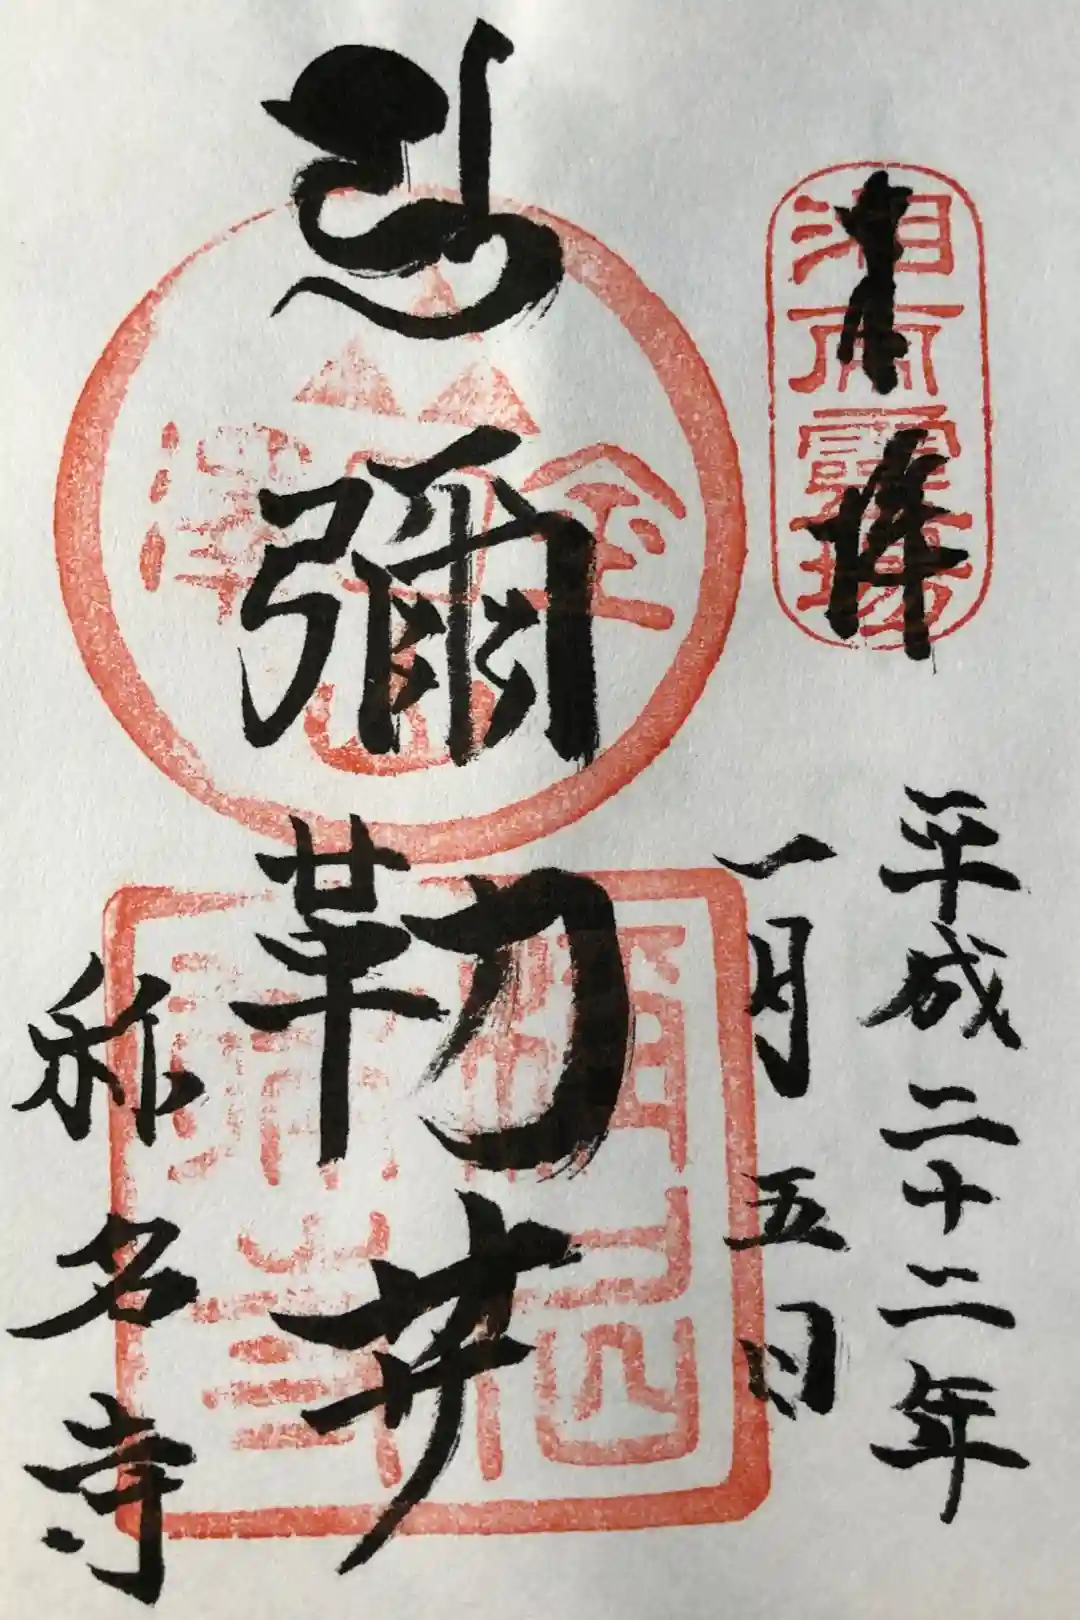 湘南靈場
奉拝
平成二十二年
一月五日
彌勒𦬇
金澤山
称名寺